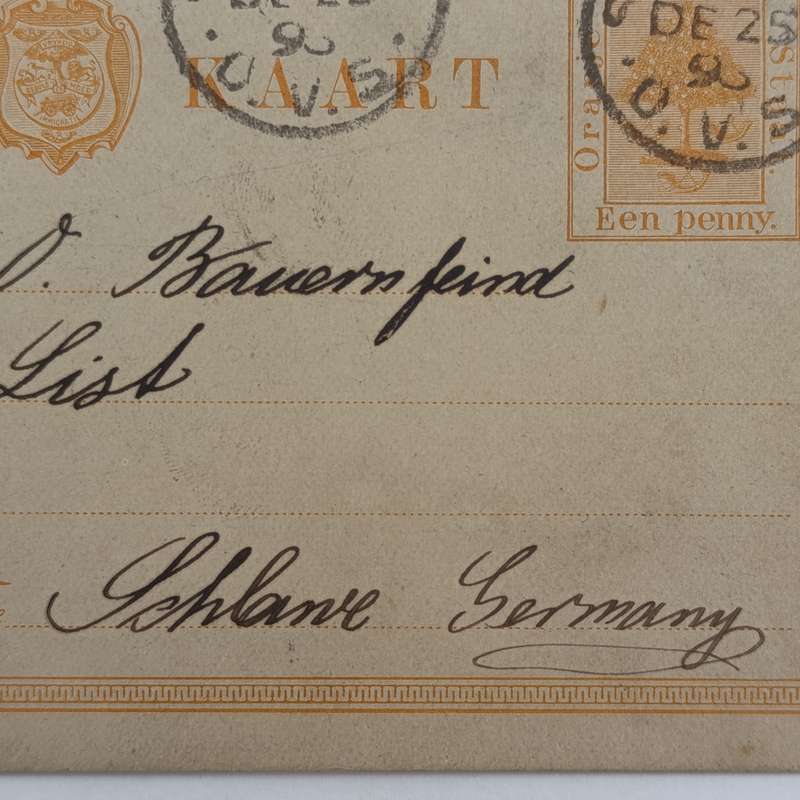 KAART
DE 25
O.V.S.
DE 25
O.V.S.
Een penny.
O. Bauernfeind
List
Schlawe Germany